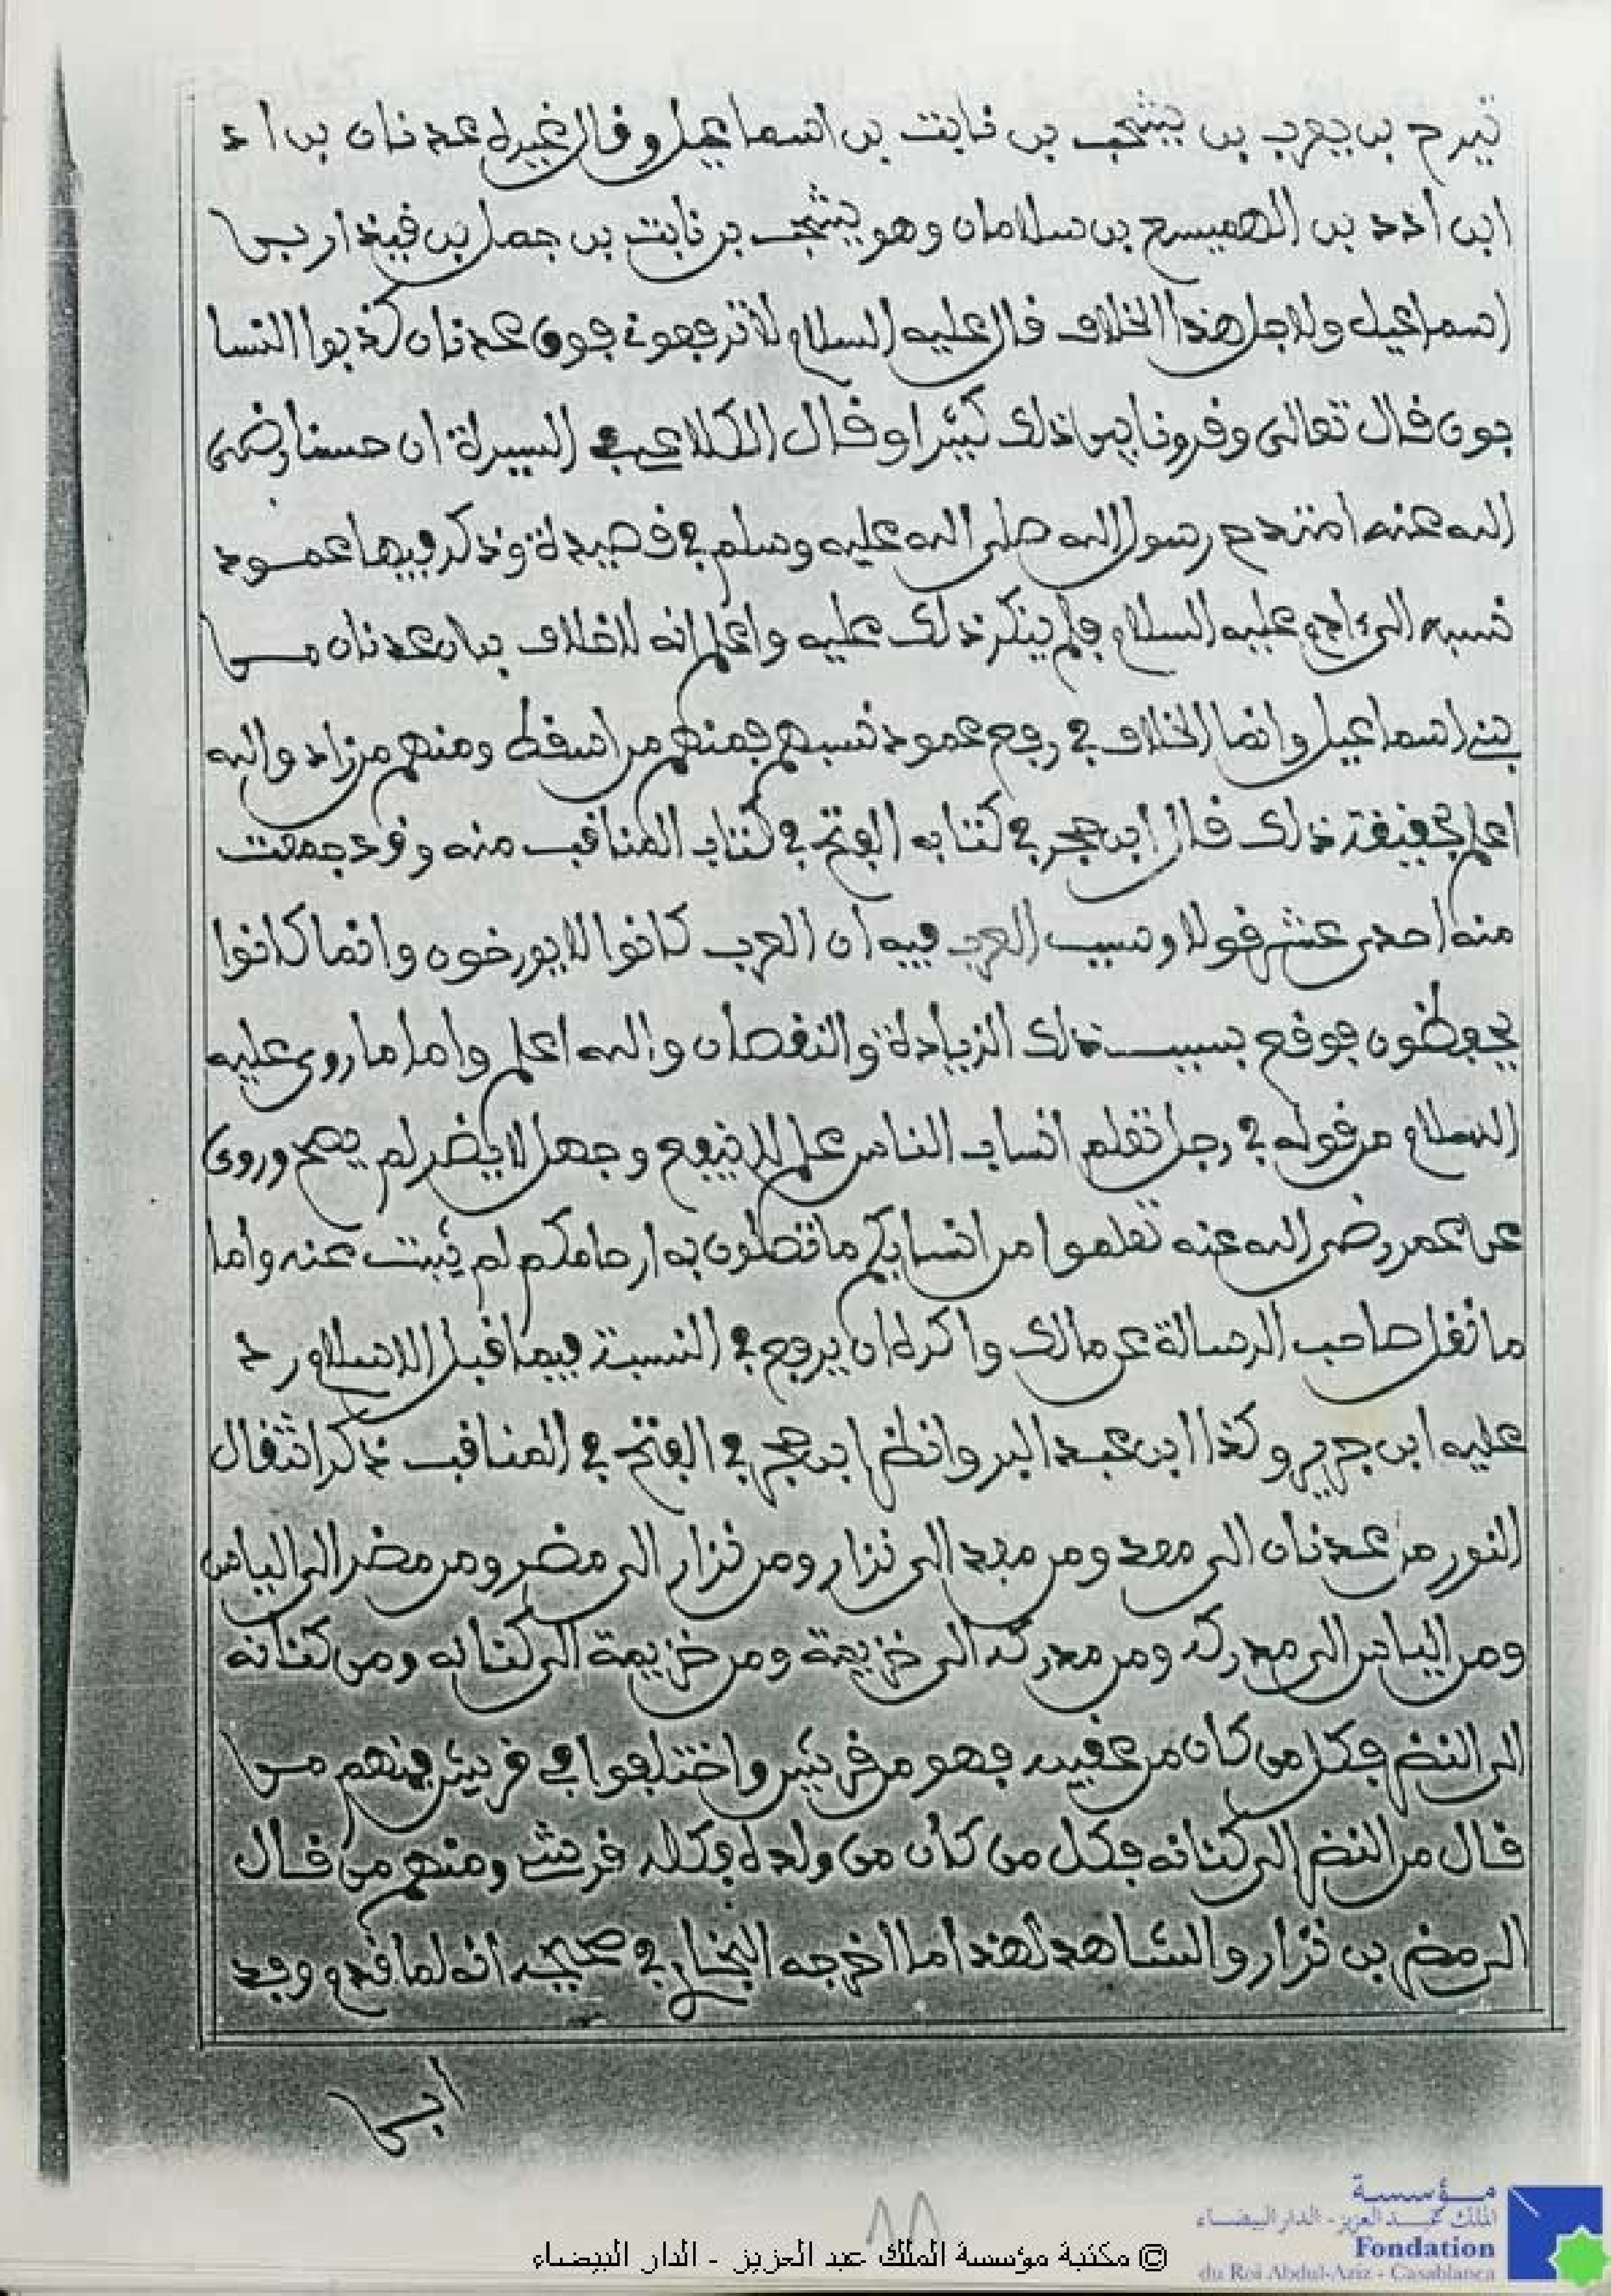 تيرح بن يعرب بن يشجب بن نابت بن اسماعيل وقال غيره عدنان بن اد
ابن ادد بن الهميسع بن سلامان وهو يشجب بن نابت بن حمل بن فيذار بن
اسماعيل ولاجل هذا الخلاف قال عليه السلام لا ترفعوني فوق عدنان كذبوا النسا
بون قال تعالى وقرونا بين ذلك كثيرا وقال الكلاعي في السيرة ان حسنا رضى
الله عنه امتدح رسول الله صلى الله عليه وسلم في قصيدة وذكر فيها عمود
نسبه الى ءادم عليه السلام فلم ينكر ذلك عليه واعلم انه لا خلاف بان عدنان من
بني اسماعيل وانما الخلاف في رفع عمود نسبهم فمنهم من اسقط ومنهم من زاد والله
اعلم بحقيقة ذلك قال ابن حجر في كتابه الفتح في كتاب المناقب منه وقد جمعت
منه احدى عشر قولا وسبب العرب فيه ان العرب كانوا لا يورخون وانما كانوا
يحفظون فوقع بسبب ذلك الزيادة والنقصان والله اعلم واما ما روى عليه
السلام من قوله في رجل تعلم انساب الناس علم لا ينفع وجهل لا يضر لم يصح وروى
عن عمر رضى الله عنه تعلموا من انسابكم ما تصلون به ارحامكم لم يثبت عنه واما
ما نقل صاحب الرسالة عن مالك واكره ان يرفع في النسبة فيما قبل الاسلام رد
عليه ابن جرير وكذا ابن عبد البر وانظر ابن حجر في الفتح في المناقب ذكر انتقال
النور من عدنان الى معد ومن معد الى نزار ومن نزار الى مضر ومن مضر الى الياس
ومن الياس الى مدركه ومن مدركه الى خزيمة ومن خزيمة الى كنانه ومن كنانه
الى النضر فكل من كان من عقبه فهو من قريش واختلفوا في قريش فمنهم من
قال من النضر الى كنانه فكل من كان من ولده فكله قريش ومنهم من قال
الى مضر بن نزار والشاهد لهذا ما اخرجه البخاري في صحيحه انه لما قدم وفد
ابن
٨٨
© مكتبة مؤسسة الملك عبد العزيز - الدار البيضاء
مؤسسة
الملك عبد العزيز - الدار البيضاء
Fondation
du Roi Abdul-Aziz - Casablanca